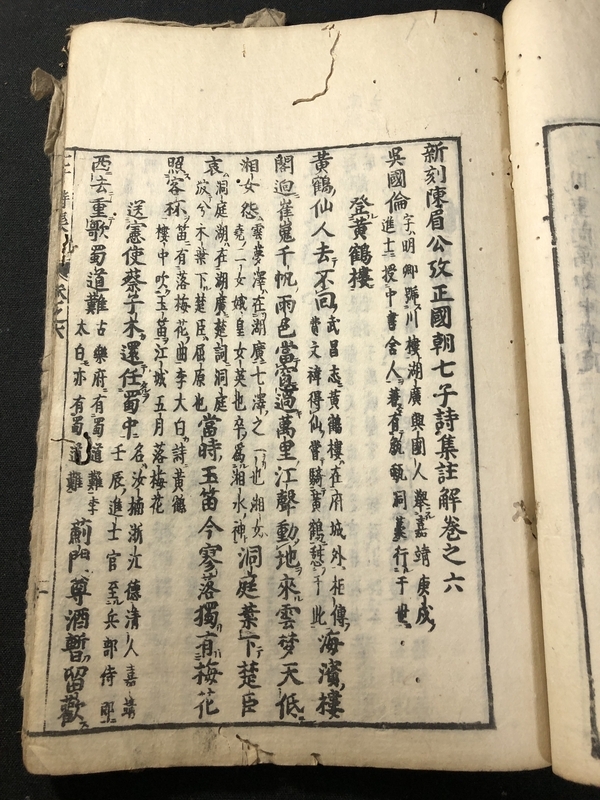 新刻陳眉公攷正國朝七子詩集註解卷之六
吳國倫
字明卿號川樓湖廣興國人舉嘉靖庚戌
進士授中書舍人兼有甔甀洞藁行于世
登黃鶴樓
黃鶴仙人去不回
武昌志黃鶴樓在府城外柜傳
費文禕得仙嘗騎黃鶴憇于此
海濱樓
閣迥崔嵬千帆雨色當窗過萬里江聲動地來雲夢天低
湘女怨
雲夢澤在湖廣七澤之一也湘女
堯二女娥皇女英也卒爲湘水神
洞庭葉下楚臣
哀
洞庭湖在湖廣楚詞洞庭
波兮木葉下楚臣屈原也
當時玉笛今寥落獨有梅花
照客杯
笛有落梅花曲李大白詩黃鶴
樓中吹玉笛江城五月落梅花
送憲使蔡子木還任蜀中
名汝楠浙江德清人嘉靖
壬辰進士官至兵部侍郎
西去重歌蜀道難
古樂府有蜀道難李
太白亦有蜀道難
薊門尊酒暫留歡